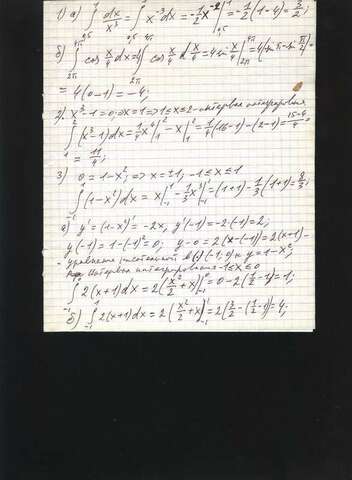 1) а) ∫₀,₅¹ dx/x³ = ∫₀,₅¹ x⁻³dx = -1/2 x⁻²|₀,₅¹ = -1/2(1-4) = 3/2;
б) ∫₂π⁴π cos x/4 dx = 4∫₂π⁴π cos x/4 d x/4 = 4 sin x/4|₂π⁴π = 4(sin π - sin π/2) =
= 4(0-1) = -4;
2) x³-1=0 ⇒ x=1 ⇒ 1≤x≤2 - интервал интегрирования
∫₁² (x³-1)dx = 1/4 x⁴|₁² - x|₁² = 1/4(16-1) - (2-1) = 15-4/4 =
= 11/4;
3) 0=1-x² ⇒ x=±1, -1≤x≤1
∫₋₁¹ (1-x²)dx = x|₋₁¹ - 1/3 x³|₋₁¹ = (1+1) - 1/3(1+1) = 8/3;
а) y' = (1-x²)' = -2x, y'(-1) = -2·(-1) = 2;
y(-1) = 1-(-1)² = 0; y-0 = 2(x-(-1)) = 2(x+1) -
уравнение касательной в (·) (-1;0) к y=1-x²;
Интервал интегрирования -1≤x≤0
∫₋₁⁰ 2(x+1)dx = 2(x²/2+x)|₋₁⁰ = 0-2(1/2-1) = 1;
б) ∫₋₁¹ 2(x+1)dx = 2(x²/2+x)|₋₁¹ = 2(3/2-(1/2-1)) = 4.